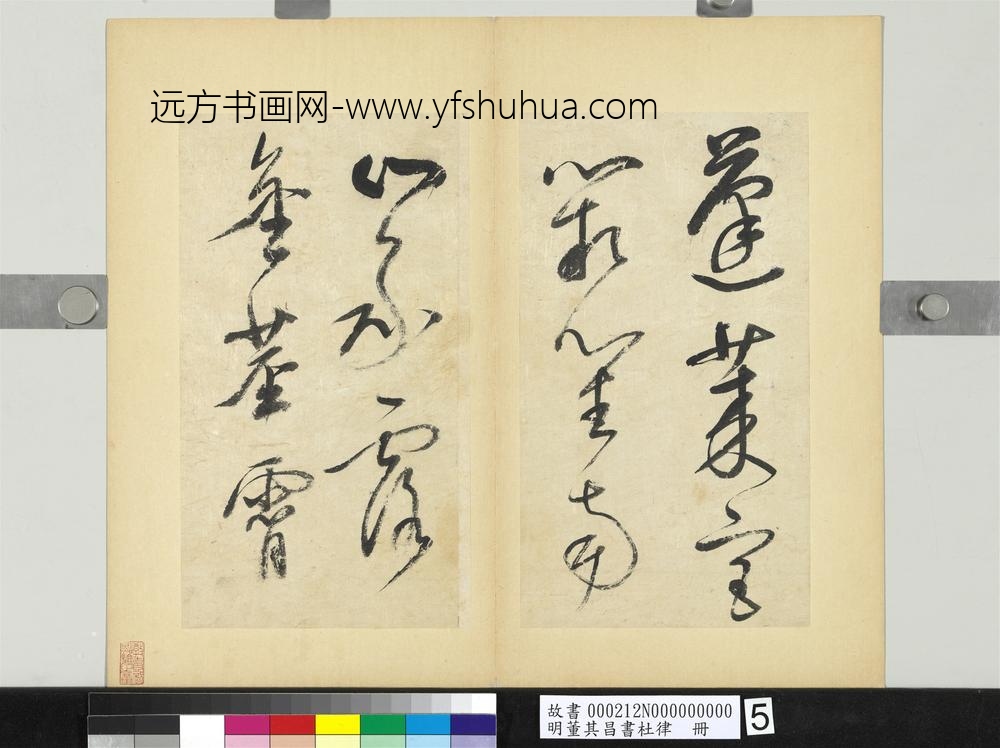 远方书画网-www.yfshuhua.com
蓬萊宮
闕對南
山承露
金莖霄
故書 000212N000000000
明董其昌書杜律 冊
5